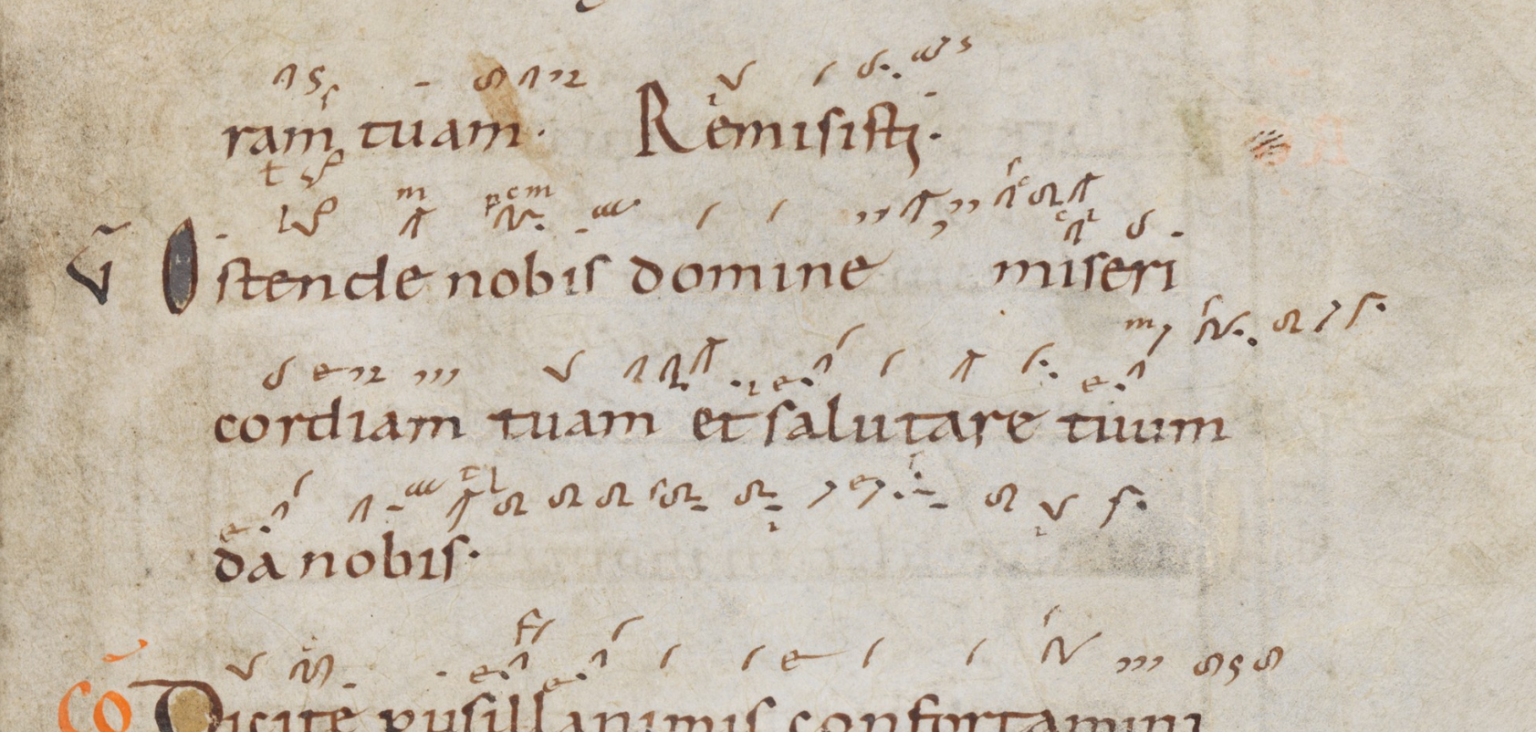 ram tuam. Remisisti.
V̄ Ostende nobis domine miseri
cordiam tuam et salutare tuum
da nobis.
C̄O Dicite pusillanimis confortamini